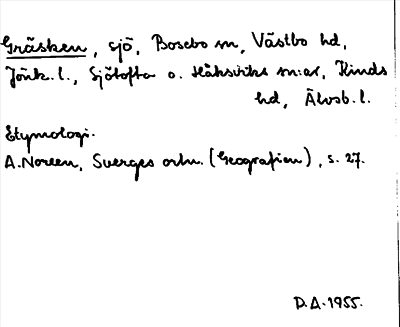 Gräsken, sjö, Bosebo sn, Västbo hd,
Jönk. l., Sjötofta o. Håksviks sn:ar, Kinds
hd, Älvsb. l.
Etymologi.
A. Noreen, Sveriges ortn. (Geografien), s. 27.
D.A. 1955.